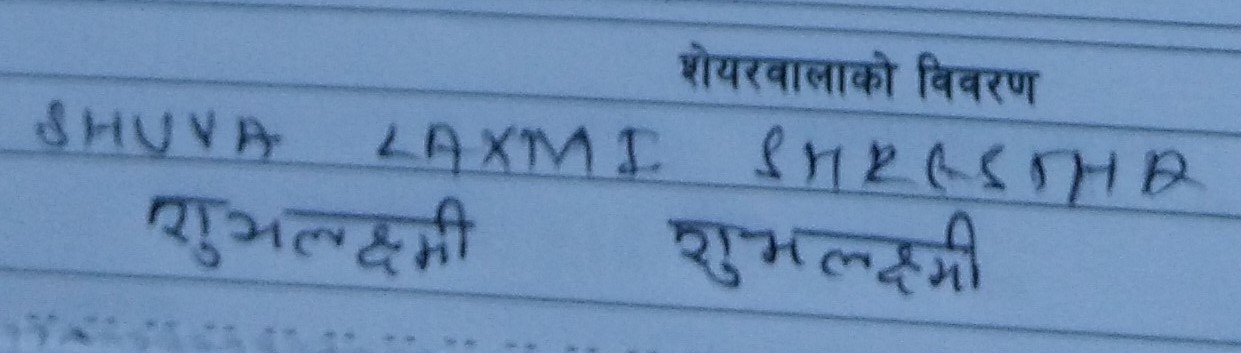 शेयरवालाको विवरण
SHUVA LAXMI SHRESTHA
शुभलक्ष्मी शुभलक्ष्मी